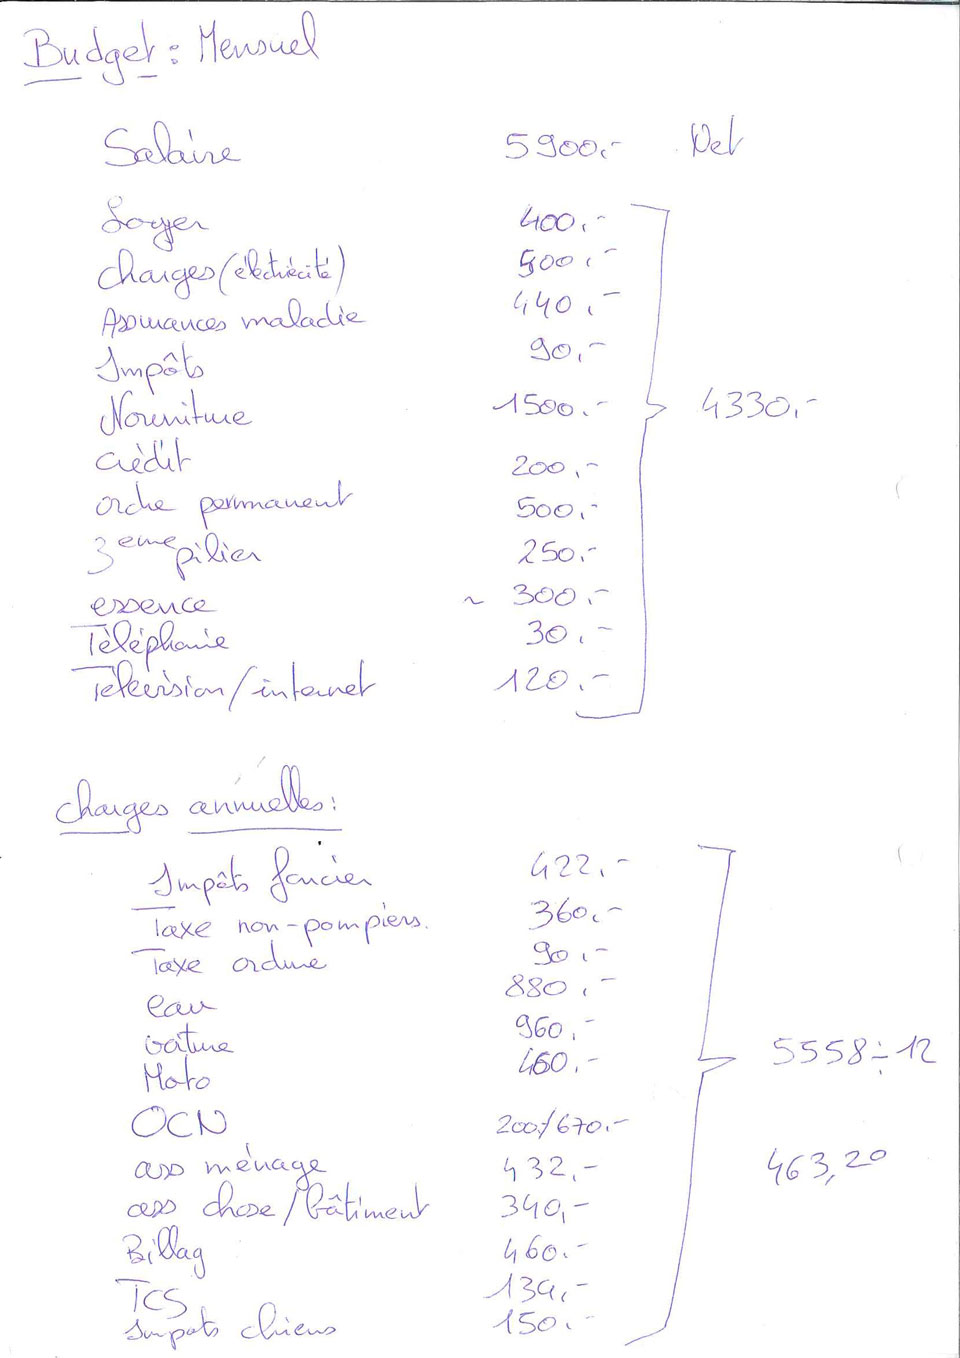 Budget : Mensuel
Salaire 5900.- Net
Loyer 400.-
charges (électricité) 500.-
Assurances maladie 440.-
Impôts 90.-
Nourriture 1500.- 4330.-
crèdit 200.-
ordre permanent 500.-
3eme pilier 250.-
essence ~ 300.-
Tèléphonie 30.-
Tèlévision/internet 120.-
charges annuelles:
Impôts foncier 422.-
Taxe non-pompiers. 360.-
Taxe ordure 90.-
eau 880.-
voiture 960.-
Moto 460.- 5558÷12
OCN 200/670.-
ass ménage 432.- 463,20
ass chose/bâtiment 340.-
Billag 460.-
TCS 134.-
Impots chiens 150.-